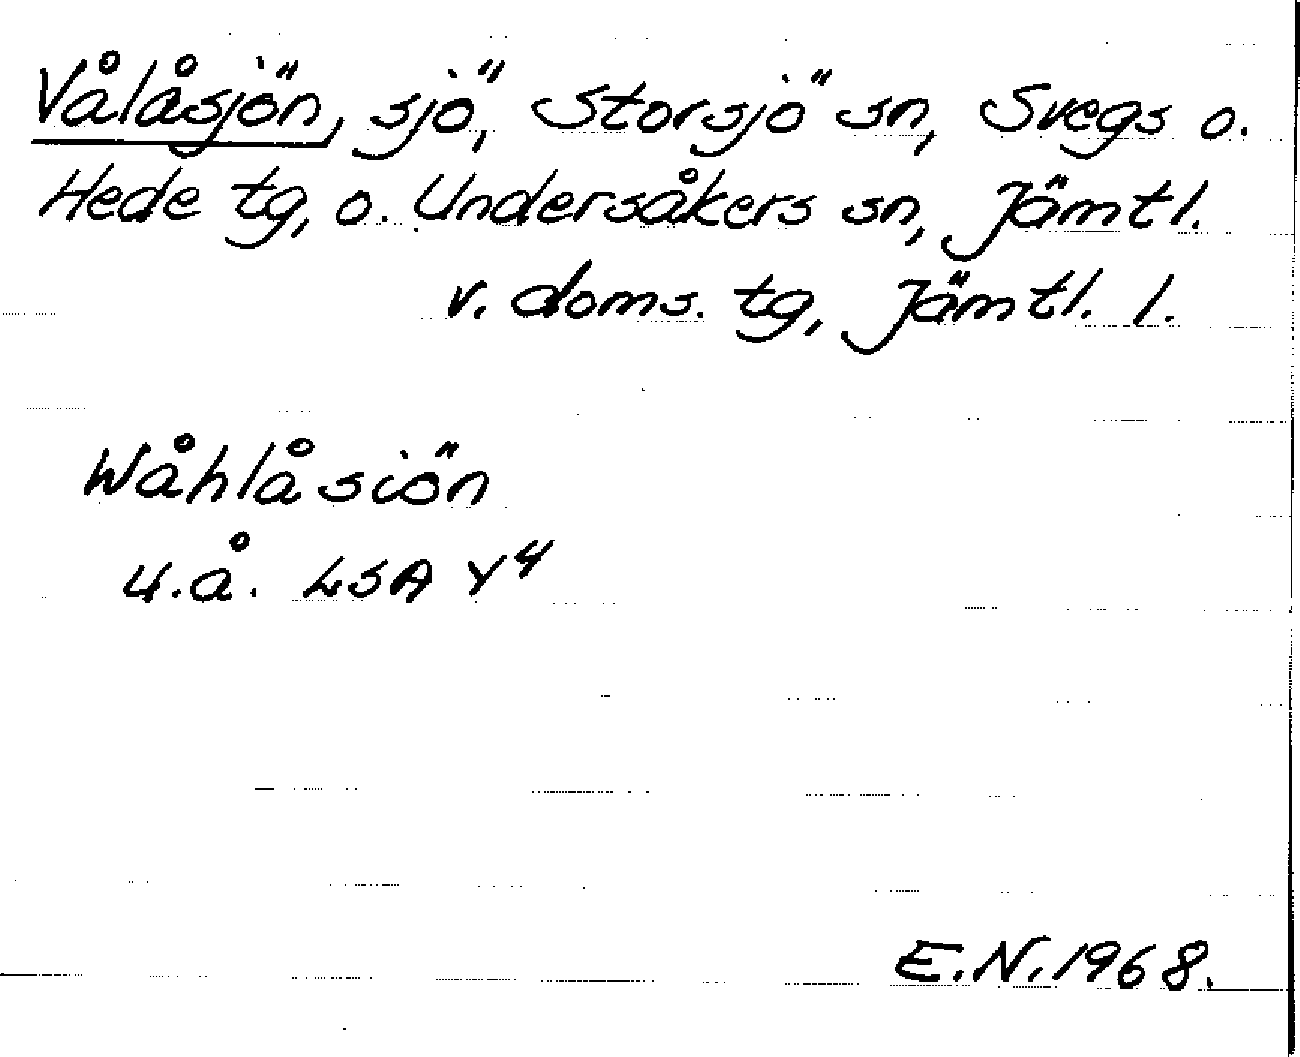 Vålåsjön, sjö, Storsjö sn, Svegs o.
Hede tg, o. Undersåkers sn, Jämtl.
v. doms. tg, Jämtl. l.
Wåhlåsiön
u.å. LSA Y4
E.N. 1968.